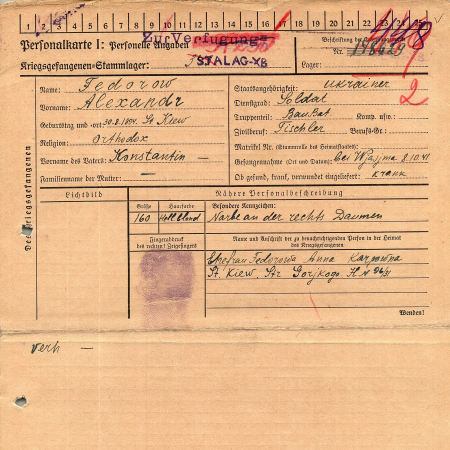 1 2 3 4 5 6 7 8 9 10 11 12 13 14 15 16 17 18 19 20 21 22 23 24 25
Zur Verfügung
Personalkarte I: Personelle Angaben
Kriegsgefangenen-Stammlager: STALAG-XB
Beschriftung der
Nr.
Lager:
2
Des Kriegsgefangenen
Name: Fedorow
Vorname: Alexandr
Geburtstag und -ort: 30.8.1894. St Kiew
Religion: Orthodox
Vorname des Vaters: Konstantin —
Familienname der Mutter: —
Staatsangehörigkeit: Ukrainer
Dienstgrad: Soldat
Truppenteil: BauBat Komp. usw.:
Zivilberuf: Tischler Berufs-Gr.:
Matrikel Nr. (Stammrolle des Heimatstaates):
Gefangennahme (Ort und Datum): bei Wjasma 8.10.41
Ob gesund, krank, verwundet eingeliefert: krank
Lichtbild
Nähere Personalbeschreibung
Größe Haarfarbe Besondere Kennzeichen:
160 Hellblond Narbe an der rechts Daumen
Fingerabdruck
des rechten Zeigefingers
Name und Anschrift der zu benachrichtigenden Person in der Heimat
des Kriegsgefangenen
Ehefrau Fedorowa Anna Karpowna
St. Kiew, Str Gorjkogo
Wenden!
verh —